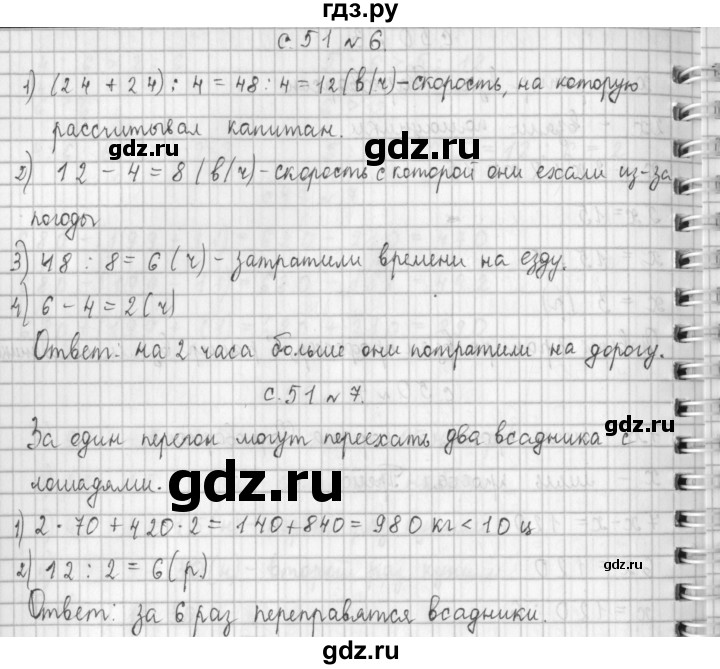 гдз.ру
с. 51 № 6.
1) (24 + 24) : 4 = 48 : 4 = 12 (в/ч) – скорость, на которую
рассчитывал капитан.
2) 12 – 4 = 8 (в/ч) – скорость с которой они ехали из-за
погоды
3) 48 : 8 = 6 (ч) – затратили времени на езду.
4) 6 – 4 = 2 (ч)
Ответ: на 2 часа больше они потратили на дорогу.
с. 51 № 7.
gdz.ru
За один перегон могут переехать два всадника с
лошадями.
gdz.ru
gdz.ru
1) 2 · 70 + 420 · 2 = 140 + 840 = 980 кг < 10 ц
2) 12 : 2 = 6 (р.)
gdz.ru
Ответ: за 6 раз переправятся всадники.
gdz.ru